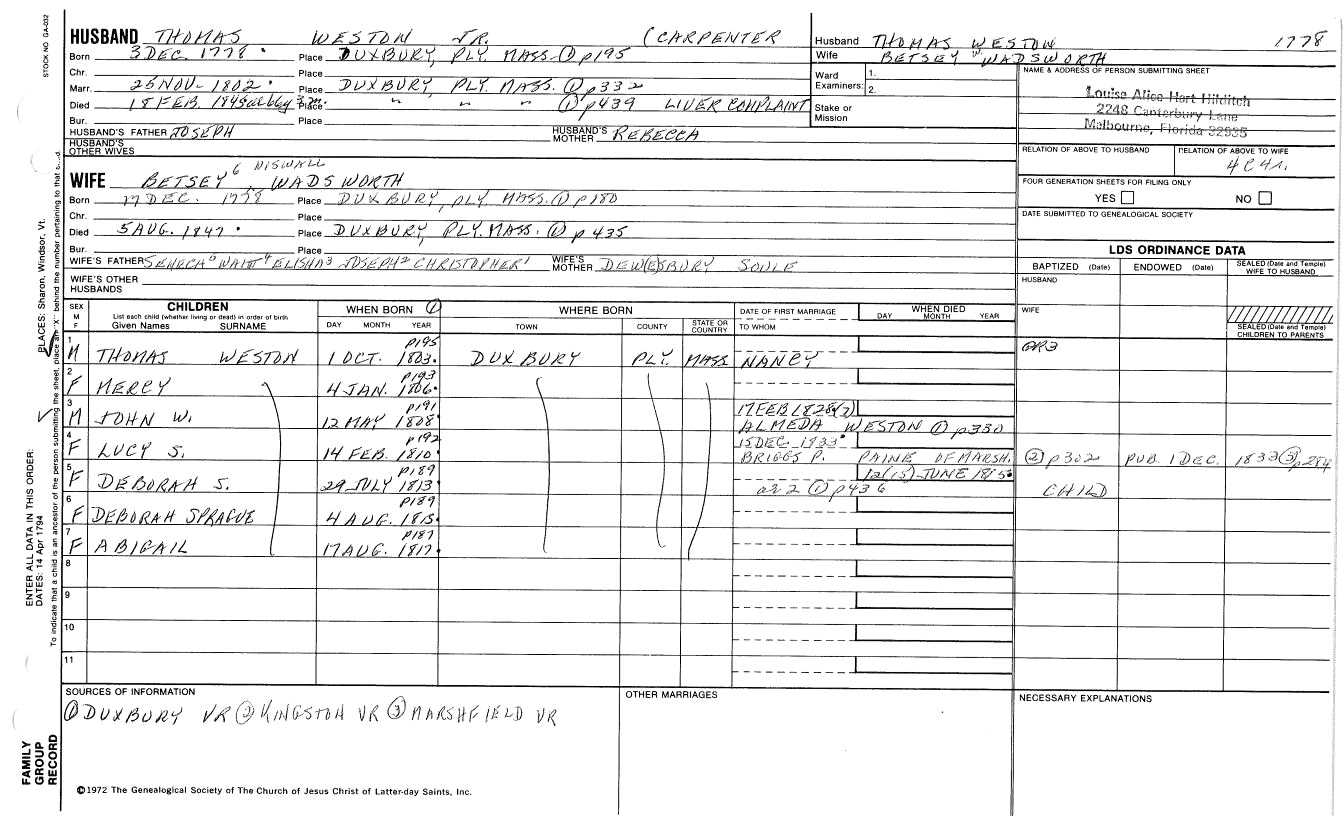 STOCK NO. GA-032
HUSBAND THOMAS WESTON JR. (CARPENTER
Born 3 DEC. 1778 Place DUXBURY, PLY. MASS. ① p195
Chr. Place
Marr. 25 NOV. 1802 Place DUXBURY, PLY. MASS. ① p332
Died 18 FEB. 1845 Place " " " ① p439 LIVER COMPLAINT
Bur. Place
HUSBAND'S FATHER JOSEPH HUSBAND'S MOTHER REBECCA
HUSBAND'S OTHER WIVES
Husband THOMAS WESTON 1778
Wife BETSEY W. WADSWORTH
Ward Examiners: 1. 2.
Stake or Mission
NAME & ADDRESS OF PERSON SUBMITTING SHEET
Louise Alice Hart Hilditch
2248 Canterbury Lane
Melbourne, Florida 32935
RELATION OF ABOVE TO HUSBAND RELATION OF ABOVE TO WIFE
4C4r.
FOUR GENERATION SHEETS FOR FILING ONLY
YES NO
DATE SUBMITTED TO GENEALOGICAL SOCIETY
WISWALL
WIFE BETSEY 6 WADSWORTH
Born 17 DEC. 1778 Place DUXBURY, PLY. MASS. ① p180
Chr. Place
Died 5 AUG. 1847 Place DUXBURY, PLY. MASS. ① p435
Bur. Place
WIFE'S FATHER SENECA 5 WAIT 4 ELISHA 3 JOSEPH 2 CHRISTOPHER 1 WIFE'S MOTHER DEW(E)SBURY SOULE
WIFE'S OTHER HUSBANDS
LDS ORDINANCE DATA
BAPTIZED (Date) ENDOWED (Date) SEALED (Date and Temple) WIFE TO HUSBAND
HUSBAND
WIFE
SEALED (Date and Temple) CHILDREN TO PARENTS
SEX M F CHILDREN WHEN BORN ① WHERE BORN DATE OF FIRST MARRIAGE WHEN DIED
List each child (whether living or dead) in order of birth
Given Names SURNAME DAY MONTH YEAR TOWN COUNTY STATE OR COUNTRY TO WHOM DAY MONTH YEAR
p195
1 M THOMAS WESTON 1 OCT. 1803 DUXBURY PLY. MASS NANCY
p193
2 F MERCY 4 JAN. 1806
p191 17 FEB 1828
3 M JOHN W. 12 MAY 1808 ALMEDA WESTON ① p330
p192 15 DEC. 1833
4 F LUCY S. 14 FEB. 1810 BRIGGS P. PAINE OF MARSH. ② p302 PUB. 1 DEC. 1833 ③ p284
p189 12(15) JUNE 1815
5 F DEBORAH S. 29 JULY 1813 ae 2 ① p436 CHILD
p189
6 F DEBORAH SPRAGUE 4 AUG. 1815
p187
7 F ABIGAIL 17 AUG. 1817
8
9
10
11
SOURCES OF INFORMATION
① DUXBURY VR ② KINGSTON VR ③ MARSHFIELD VR
OTHER MARRIAGES
NECESSARY EXPLANATIONS
©1972 The Genealogical Society of The Church of Jesus Christ of Latter-day Saints, Inc.
FAMILY GROUP RECORD
ENTER ALL DATA IN THIS ORDER:
DATES: 14 Apr 1794
PLACES: Sharon, Windsor, Vt.
To indicate that a child is an ancestor of the person submitting the sheet, place an "X" behind the number pertaining to that